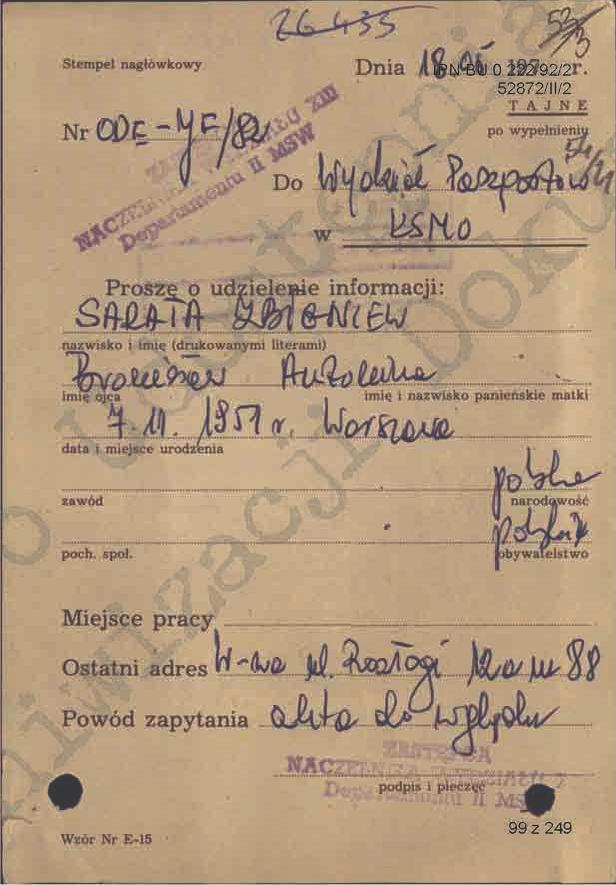 26435
53/3
Stempel nagłówkowy
Dnia 18.05 197 r.
IPN BU 0 222/92/2
52872/II/2
TAJNE
po wypełnieniu
Nr ODE-YE/82
NACZELNIKA WYDZIAŁU XIII
Departamentu II MSW
Do Wydział Paszportów
w KSMO
Proszę o udzielenie informacji:
SARATA ZBIGNIEW
nazwisko i imię (drukowanymi literami)
Bronisław Antonina
imię ojca imię i nazwisko panieńskie matki
7.11.1951 r. Warszawa
data i miejsce urodzenia
polska
zawód narodowość
polskie
poch. społ. obywatelstwo
Miejsce pracy
Ostatni adres W-wa ul. Rozłogi 12a m 88
Powód zapytania akta do wglądu
ZASTĘPCA
NACZELNIKA WYDZIAŁU
Departamentu II MSW
podpis i pieczęć
99 z 249
Wzór Nr E-15